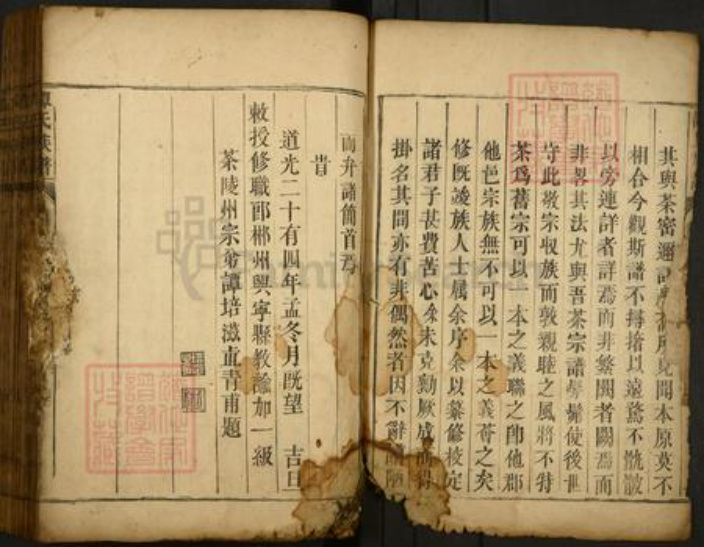 其與茶密邇見聞本原莫不
相合今觀斯譜不撏撦以遠騖不骫骳
以旁連詳者詳焉而非繁闕者闕焉而
非畧其法尤與吾茶宗譜髣髴使後世
守此敬宗收族而敦親睦之風將不特
茶爲舊宗可以一本之義聯之卽他郡
他邑宗族無不可以一本之義荅之矣
修既竣族人士属余序余以纂修校定
諸君子甚費苦心余未克勷厥成而得
掛名其間亦有非偶然者因不辭
而弁諸簡首焉
旹
道光二十有四年孟冬月既望 吉旦
敕授修職郎郴州興寧縣教諭加一級
茶陵州宗爺譚培滋直青甫題
氏族譜